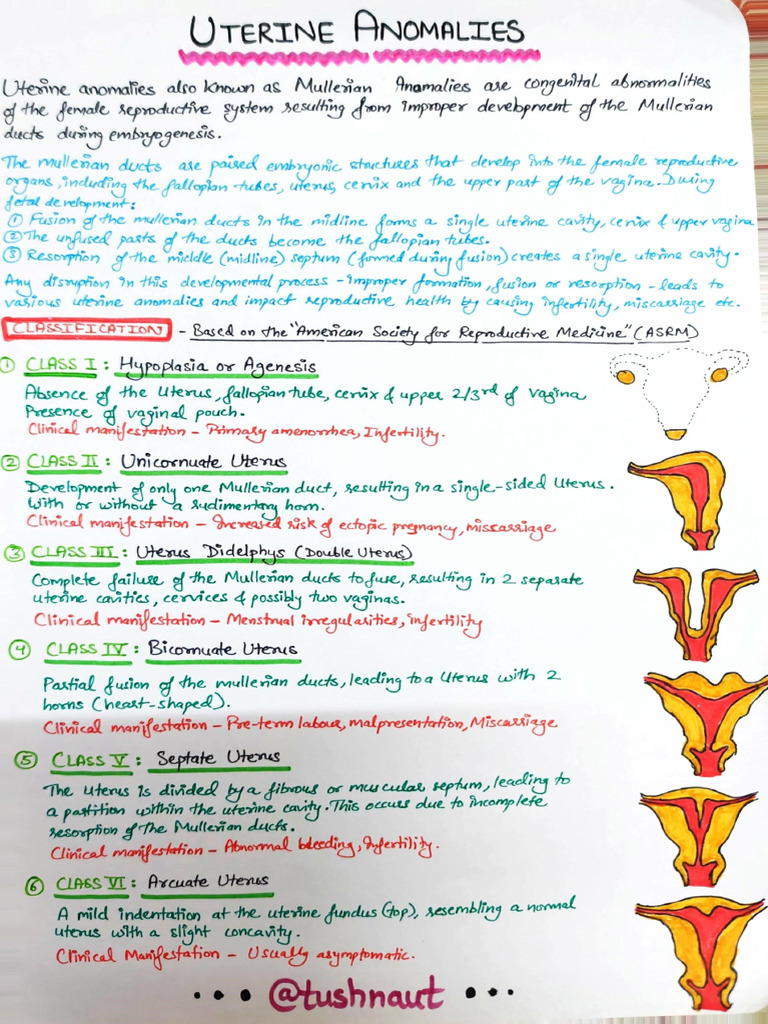 UTERINE ANOMALIES
Uterine anomalies also known as Mullerian Anamalies are congenital abnormalities
of the female reproductive system resulting from improper development of the Mullerian
ducts during embryogenesis.
The mullerian ducts are paired embryonic structures that develop into the female reproductive
organs, including the fallopian tubes, uterus, cervix and the upper part of the vagina. During
fetal development:
① Fusion of the mullerian ducts in the midline forms a single uterine cavity, cervix & upper vagina
② The unfused parts of the ducts become the fallopian tubes.
③ Resorption of the middle (midline) septum (formed during fusion) creates a single uterine cavity.
Any disruption in this developmental process - improper formation, fusion or resorption - leads to
various uterine anomalies and impact reproductive health by causing infertility, miscarriage etc.
CLASSIFICATION - Based on the "American Society for Reproductive Medicine" (ASRM)
① CLASS I : Hypoplasia or Agenesis
Absence of the Uterus, fallopian tube, cervix & upper 2/3rd of vagina
Presence of vaginal pouch.
Clinical manifestation - Primary amenorrhea, Infertility.
② CLASS II : Unicornuate Uterus
Development of only one Mullerian duct, resulting in a single-sided Uterus.
With or without a rudimentary horn.
Clinical manifestation - Increased risk of ectopic pregnancy, miscarriage
③ CLASS III : Uterus Didelphys (Double Uterus)
Complete failure of the Mullerian ducts to fuse, resulting in 2 separate
uterine cavities, cervices & possibly two vaginas.
Clinical manifestation - Menstrual irregularities, infertility
④ CLASS IV : Bicornuate Uterus
Partial fusion of the mullerian ducts, leading to a Uterus with 2
horns (heart-shaped).
Clinical manifestation - Pre-term labour, malpresentation, Miscarriage
⑤ CLASS V : Septate Uterus
The Uterus is divided by a fibrous or muscular septum, leading to
a partition within the uterine cavity. This occurs due to incomplete
resorption of the Mullerian ducts.
Clinical manifestation - Abnormal bleeding, Infertility.
⑥ CLASS VI : Arcuate Uterus
A mild indentation at the uterine fundus (top), resembling a normal
uterus with a slight concavity.
Clinical Manifestation - Usually asymptomatic.
• • • @tushnaut • • •